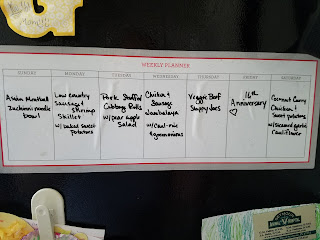 WEEKLY PLANNER
SUNDAY
MONDAY
TUESDAY
WEDNESDAY
THURSDAY
FRIDAY
SATURDAY
Asian Meatball
Zucchini noodle
bowl
Low country
Sausage &
Shrimp
Skillet
w/ baked sweet
potatoes
Pork Stuffed
Cabbage Rolls
w/pear apple
Salad
Chicken &
Sausage
Jambalaya
w/
& green onions
Veggie Beef
Sloppy Joes
16th
Anniversary
♡
Coconut Curry
Chicken &
Sweet potatoes
w/steamed garlic
Cauliflower